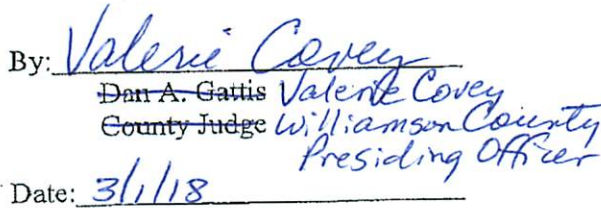 By: Valerie Covey
Dan A. Gattis Valerie Covey
County Judge Williamson County
Presiding Officer
Date: 3/1/18